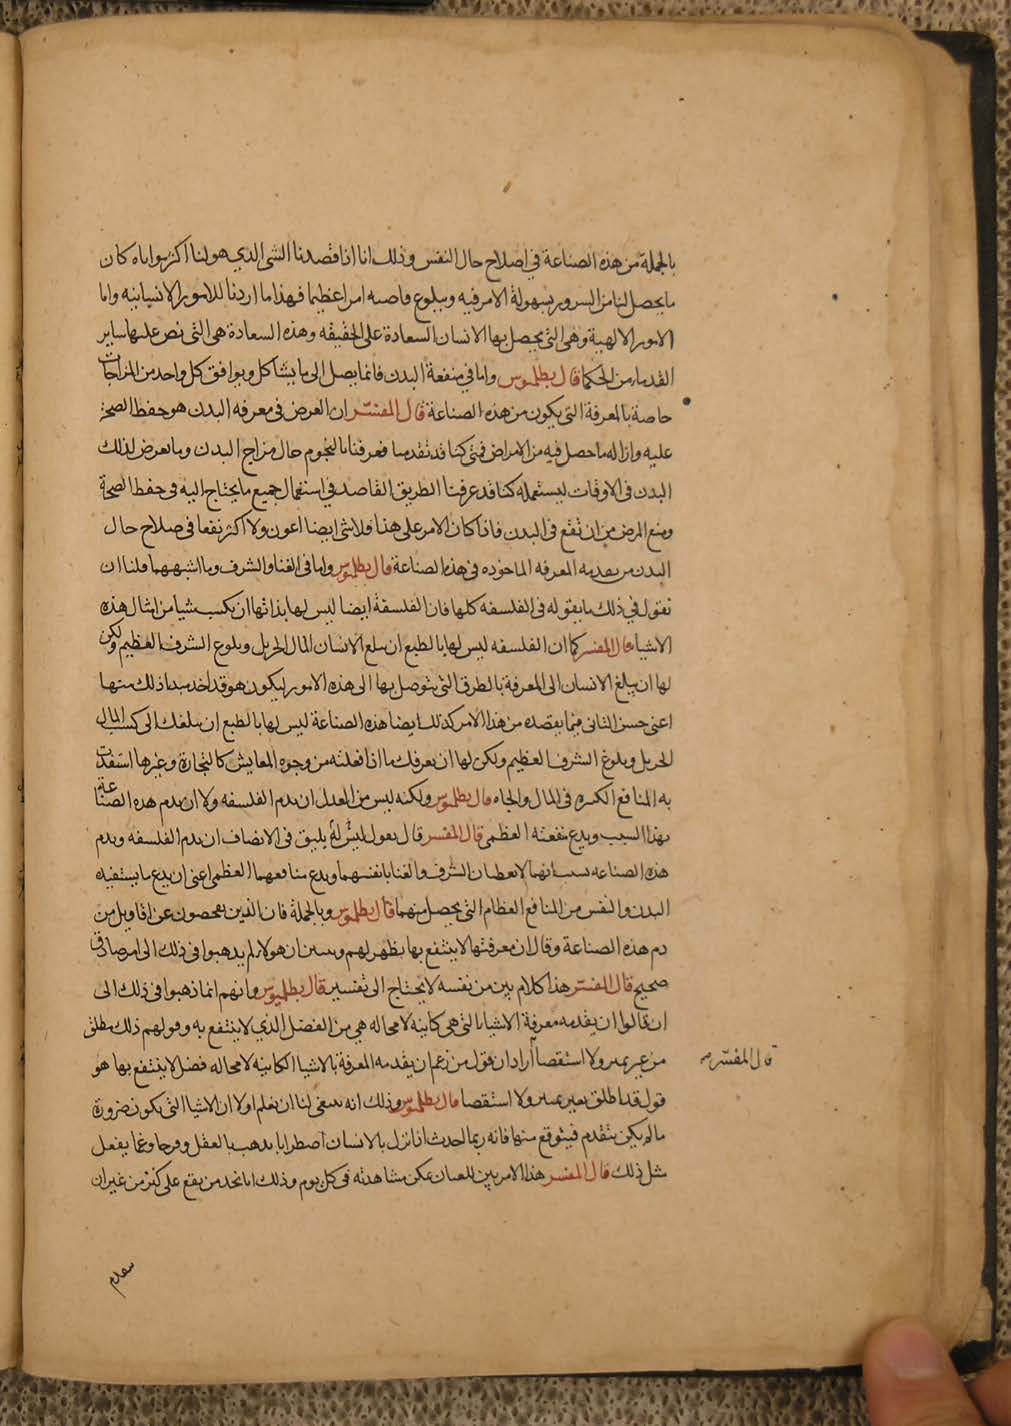 بالجملة من هذه الصناعة في اصلاح حال النفس وذلك انا اذا قصدنا الشي الذي هو لنا اكثر مواياه كان
ما يحصل لنا من السرور بسهولة الامر فيه وببلوغ امرا عظيما فهذا ما اردنا للامور الانسانيه واما
الامور الالهية وهى التى يحصل بها الانسان السعادة على الحقيقه وهذه السعادة هى التى نص عليها ساير
القدماء من الحكما قال بطلميوس واما في منفعة البدن فانما يصل الى ما يشاكل ويوافق كل واحد من المزاجات
خاصة بالمعرفة التى يكون من هذه الصناعة قال المفسّر ان الغرض فى معرفه البدن هو حفظ الصحة
عليه وازاله ما حصل فيه من الامراض فمتى كنا قد تقدمنا فعرفنا بالنجوم حال مزاج البدن وما يعرض لذلك
البدن فى الاوقات ليستعمله كنا قد عرفنا الطريق القاصد في استعمال جميع ما يحتاج اليه فى حفظ الصحة
ومنع المرض من ان تقع فى البدن فاذا كان الامر على هذا فلا شى ايضا اعون ولا اكثر نفعا فى صلاح حال
البدن من تقدمه المعرفه الماخوذه فى هذه الصناعة قال بطلميوس واما فى الغنا والشرف وما اشبههما فلنا ان
نقول فى ذلك ما يقوله فى الفلسفه كلها فان الفلسفة ايضا ليس لها بذاتها ان يكسب شيا من امثال هذه
الاشيا قال المفسر كما ان الفلسفه ليس لها بالطبع ان يبلغ الانسان المال الجزيل وبلوغ الشرف العظيم ولكن
لها ان يبلغ الانسان الى المعرفة بالطرق التى يتوصل بها الى هذه الامور ليكون هو قد اخذ مبدا ذلك منها
اعنى حسن التانى فيما يقصده من هذا الامر كذلك ايضا هذه الصناعة ليس لها بالطبع ان يبلغك الى كسب المال
الجزيل وبلوغ الشرف العظيم ولكن لها ان يعرفك ما اذا فعلته من وجوه المعايش كالتجارة وغيرها استفدت
به المنافع الكثيره فى المال والجاه قال بطلميوس ولكنه ليس من العدل ان يذم الفلسفه ولا ان يذم هذه الصناعة
بهذا السبب ويدع منفعته العظمى قال المفسر قال يقول ليس له يليق فى الانصاف ان يذم الفلسفه ويذم
هذه الصناعه بسبب انهما لا يعطيان الشرف والغنا بانفسهما ويدع منافعهما العظمى اعنى ان يدع ما يستفيده
البدن والنفس من المنافع العظام التى يحصل منهما قال بطلميوس وبالجملة فان الذين يفحصون عن اقاويل من
ذم هذه الصناعة وقال ان معرفتها لا ينتفع بها يظهر لهم ويتبين ان هولاء لم يذهبوا فى ذلك الى امر صادق
صحيح قال المفسّر هذا كلام بين من نفسه لا يحتاج الى تفسير قال بطلميوس وانهم انما ذهبوا فى ذلك الى
ان قالوا ان تقدمه معرفة الاشيا التى هى كاينه لا محاله هى من الفضل الذي لا ينتفع به وقولهم ذلك مطلق
من غير تمييز ولا استقصا اراد ان قول من زعم ان تقدمه المعرفة بالاشيا الكاينه لا محاله فضل لا ينتفع بها هو
قال المفسّر
قول قد اطلق بغير تمييز ولا استقصا قال بطلميوس وذلك انه ينبغى لنا ان نعلم اولا ان الاشيا التى يكون ضرورة
ما لم يكن يتقدم فيتوقع منها فانه ربما الحدث اذا نزل بالانسان اضطرابا يذهب بالعقل وفرحا وغما يفعل
مثل ذلك قال المفسر هذا الامر بين للعيان يمكن مشاهدته فى كل يوم وذلك انا نجد من يقع على كنز من غير ان